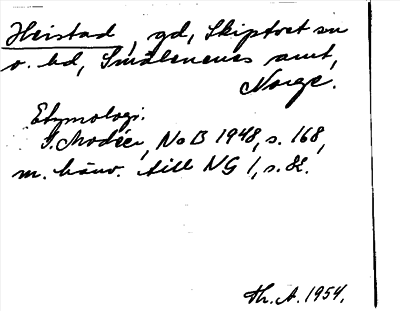 Heistad, gd, Skiptvet sn
o. hd, Smålenenes amt,
Norge.
Etymologi:
I. Modéer, NoB 1948, s. 168,
m. hänv. till NG 1, s. 82.
Th. A. 1954.